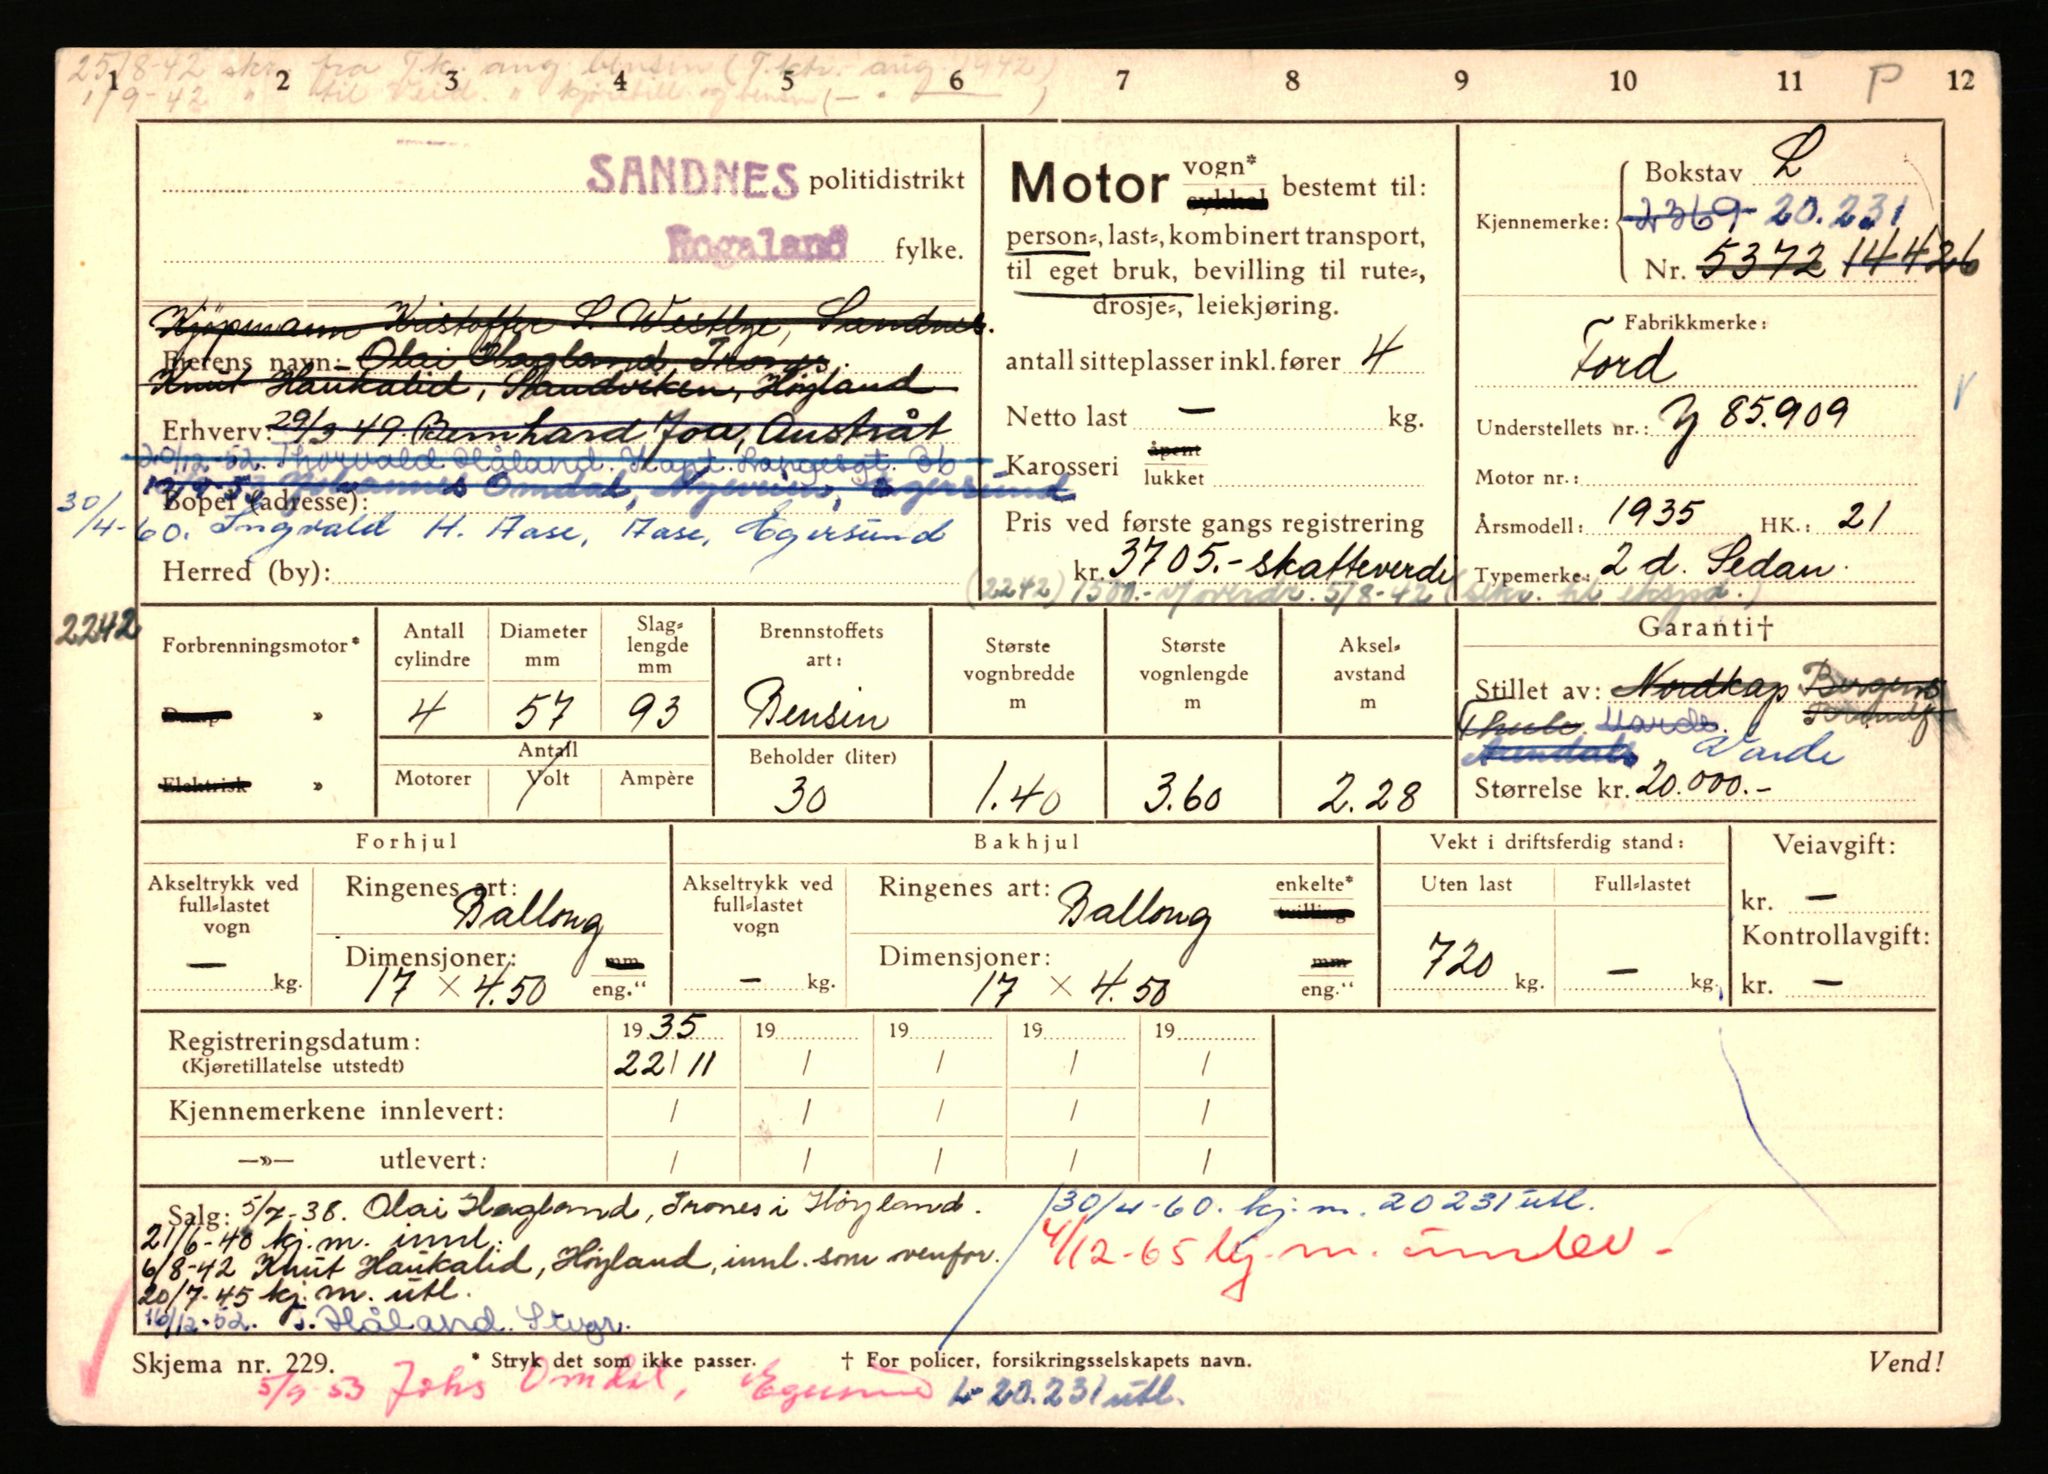 25/8-42 skr. fra T.k. ang. bensin (T.ktr. - aug. 1942)
1/9-42 " til Veid. " kjøretill. og bensin ( - " - )
1 2 3 4 5 6 7 8 9 10 11 P 12
SANDNES politidistrikt
Rogaland fylke.
Kjøpmann Kristoffer L. Westlye, Sandnes.
Eierens navn: Olai Hagland Trones.
Knut Haukalid, Sandviken, Høyland
Erhverv: 29/3 49. Bernhard Joa, Austråt
20/12-52. Thorvald Håland. Kapt. Langesgt. 36
Johannes Omdal, Egersund
Bopel (adresse):
30/4-60. Ingvald H. Aase, Aase, Egersund
Herred (by):
Motor vogn* sykkel bestemt til:
person=, last=, kombinert transport,
til eget bruk, bevilling til rute=,
drosje=, leiekjøring.
antall sitteplasser inkl. fører 4
Netto last — kg.
Karosseri åpent lukket
Pris ved første gangs registrering
kr. 3705.- skatteverdi
(2242) 1500.- v/overdr. 5/8-42 (skr. til ekspd.)
Kjennemerke: Bokstav L
2369 20.231
Nr. 5372 14426
Fabrikkmerke:
Ford
Understellets nr.: Y 85.909
Motor nr.:
Årsmodell: 1935 HK.: 21
Typemerke: 2 d. Sedan.
2242
Forbrenningsmotor*
Damp »
Elektrisk »
Antall cylindre 4
Diameter mm 57
Slag=lengde mm 93
Antall
Motorer Volt Ampère
Brennstoffets art: Bensin
Beholder (liter) 30
Største vognbredde m 1.40
Største vognlengde m 3.60
Aksel=avstand m 2.28
Garanti†
Stillet av: Nordkap Bergens
Thule Varde
Arendals Varde
Størrelse kr. 20.000.-
Forhjul
Akseltrykk ved full=lastet vogn — kg.
Ringenes art: Ballong
Dimensjoner: 17 × 4.50 mm eng."
Bakhjul
Akseltrykk ved full=lastet vogn — kg.
Ringenes art: Ballong enkelte* tvilling
Dimensjoner: 17 × 4.50 mm eng."
Vekt i driftsferdig stand:
Uten last 720 kg.
Full=lastet — kg.
Veiavgift:
kr. —
Kontrollavgift:
kr. —
Registreringsdatum: 19 35 19 19 19 19
(Kjøretillatelse utstedt) 22/11 / / / /
Kjennemerkene innlevert: / / / / /
—»— utlevert: / / / / /
Salg: 5/7-38. Olai Hagland, Trones i Høyland.
21/6-40 kj.m. innl.
6/8-42 Knut Haukalid, Høyland, innl. som ovenfor.
20/7-45 kj. m. utl.
16/12-52. T. Håland. Stvgr.
30/4-60. kj. m. 20231 utl.
4/12-65 kj. m. innlev -
Skjema nr. 229. * Stryk det som ikke passer. † For policer, forsikringsselskapets navn. Vend!
5/9-53 Johs Omdal, Egersund L-20.231 utl.